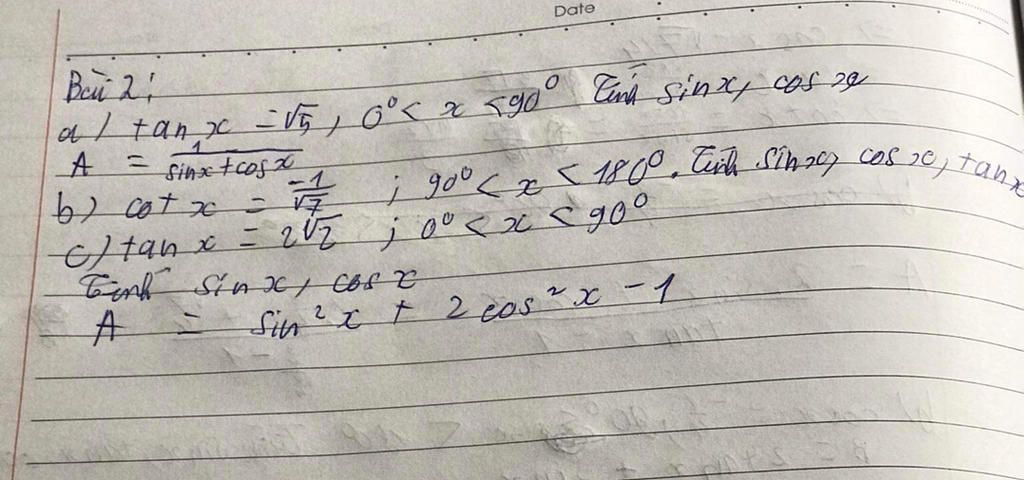 Date
Bài 2:
a) tan x = √5, 0° < x < 90° Tính sinx, cos x
A = 1/(sinx + cosx)
b) cot x = -1/√7 ; 90° < x < 180°. Tính sinx, cos x, tan x
c) tan x = 2√2 ; 0° < x < 90°
Tính sin x, cos x
A = sin²x + 2cos²x - 1